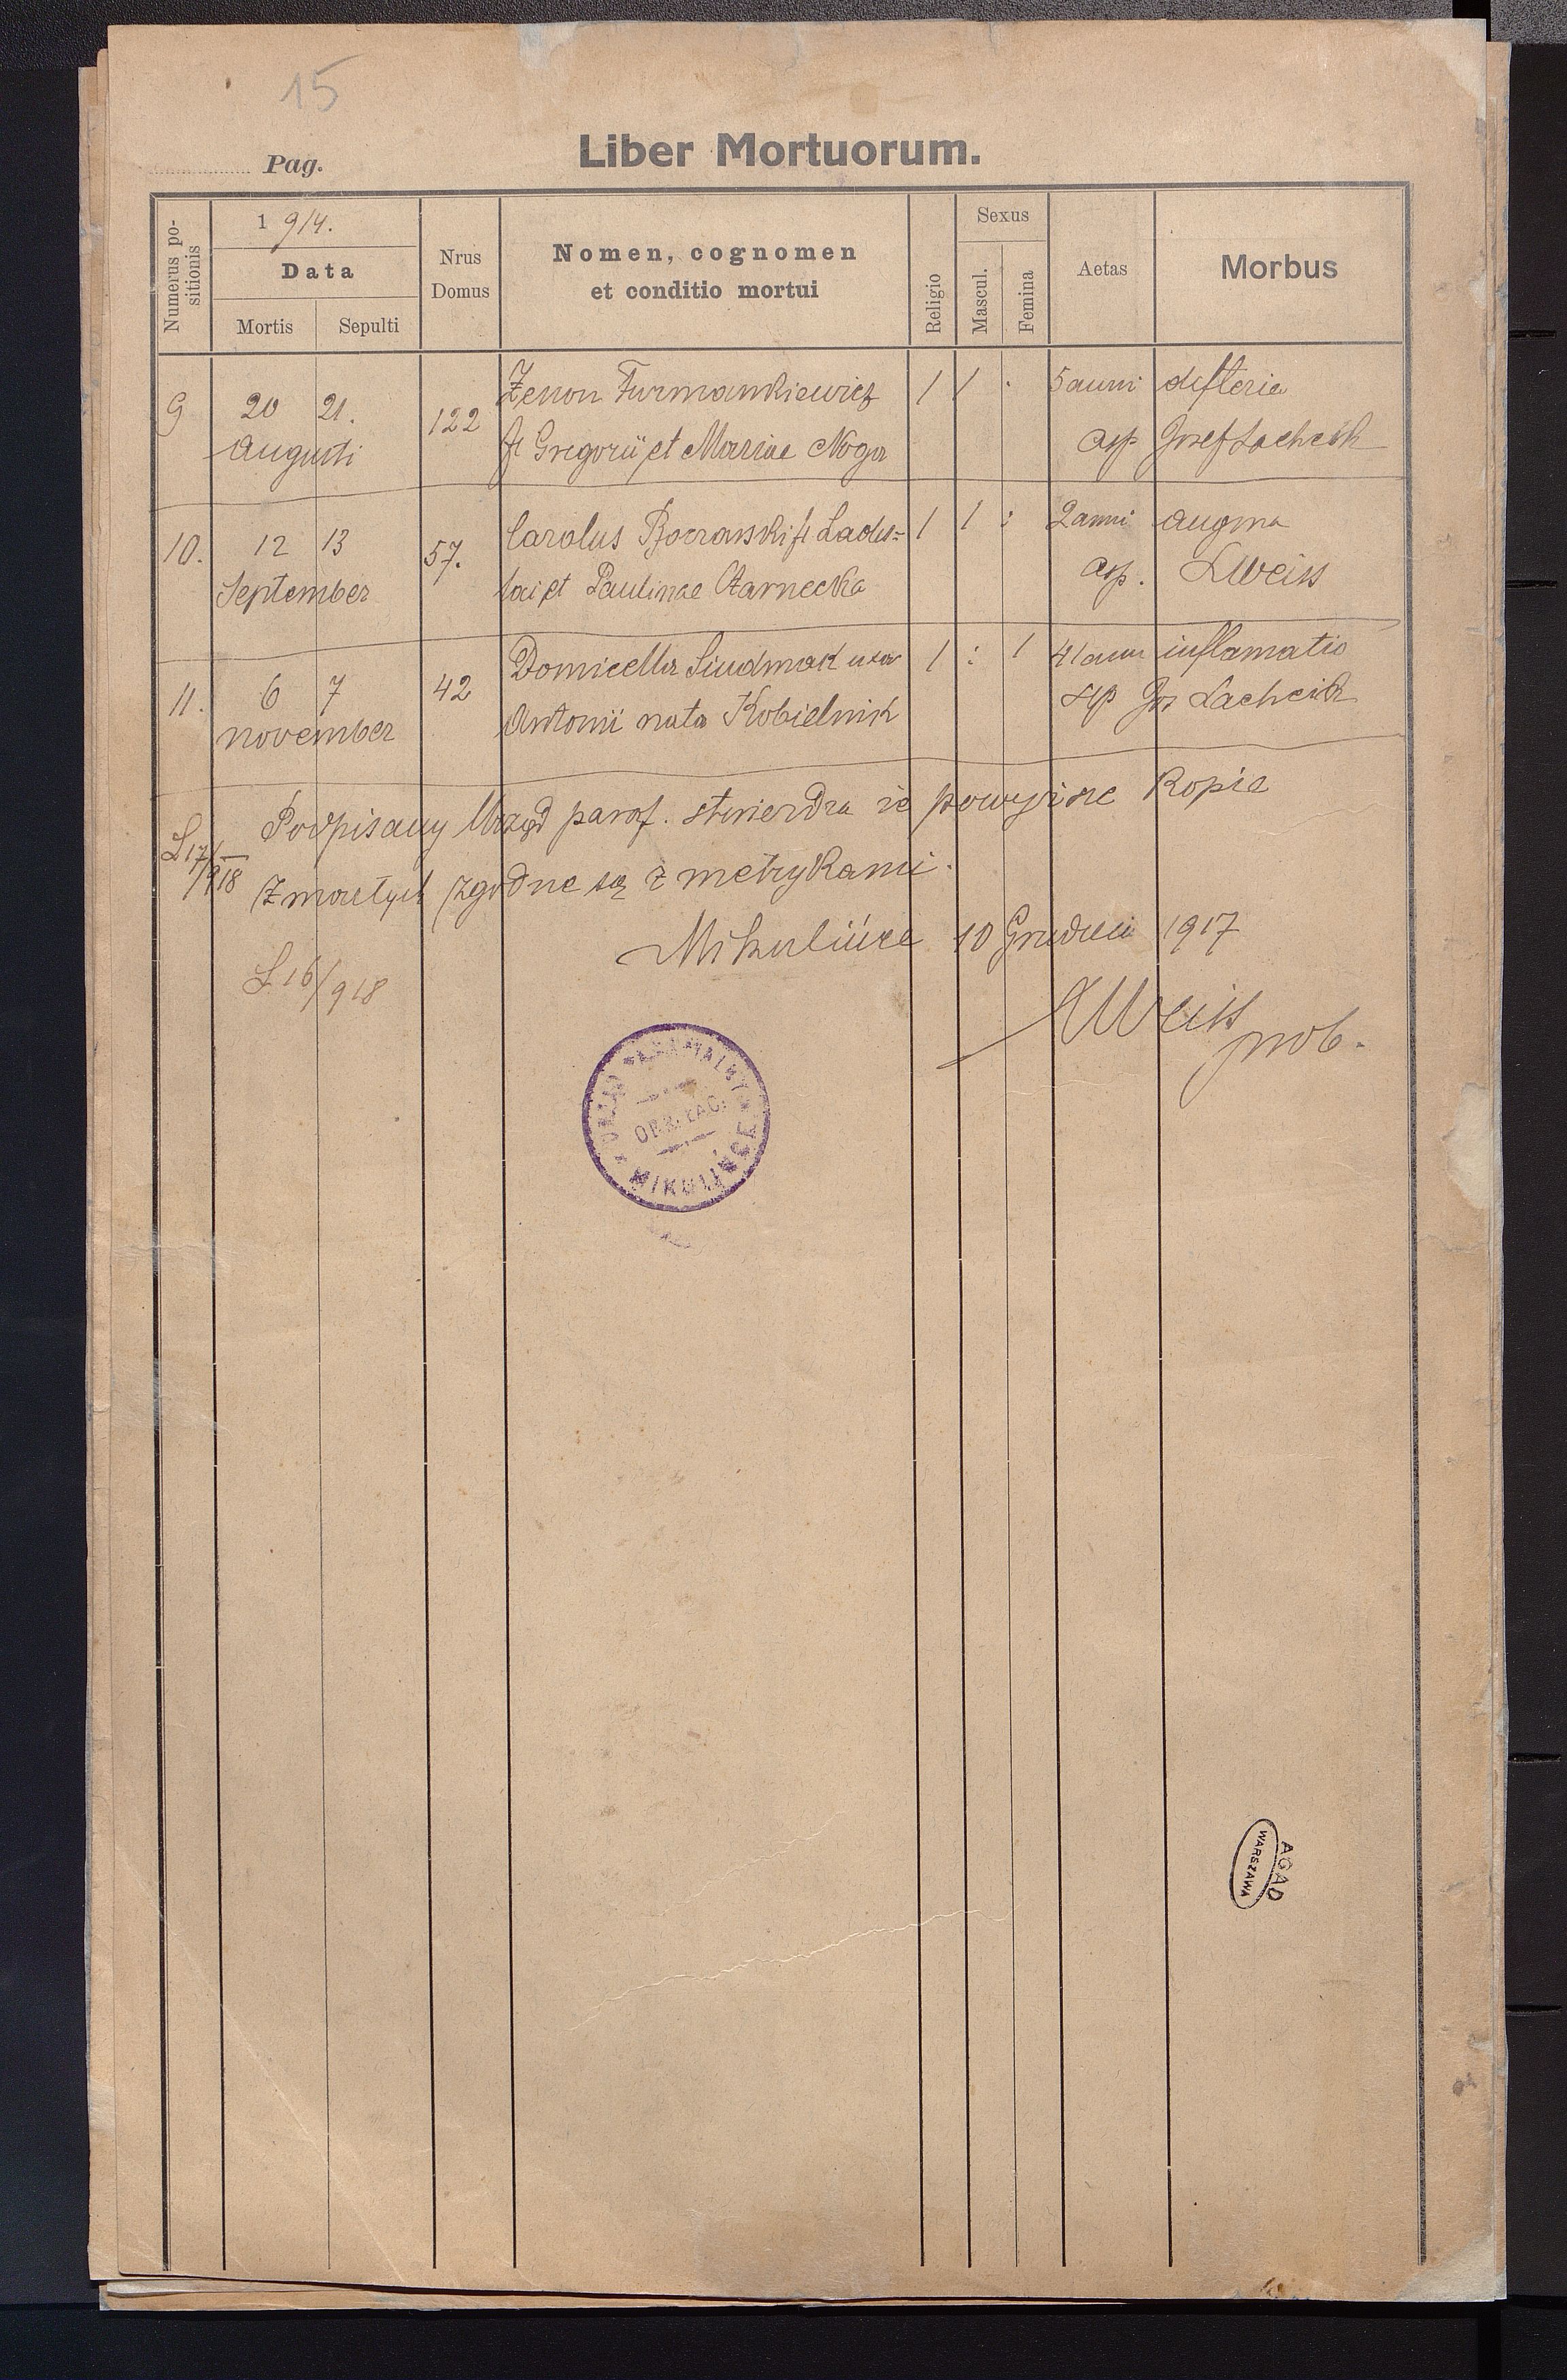 15
Pag.
Liber Mortuorum.
Numerus positionis
1 914.
Data
Mortis Sepulti
Nrus Domus
Nomen, cognomen
et conditio mortui
Religio
Sexus
Mascul. Femina
Aetas
Morbus
9 20 21. 122 Zenon Furmankiewicz 1 1 . 5 anni difterie
Augusti fi Gregorii et Mariae Noga asp Josef Lacheik
10. 12 13 57. Carolus fi Ladis= 1 1 : 2 anni angina
September lai et Paulinae Czarnecka asp. LWeiss
11. 6 7 42 Domicella Siudmak uxor 1 : 1 41 anni inflamatio
november Antonii nata Kobielnik asp Jos Lacheik
L17/918 Podpisany Urząd paraf. stwierdza że powyższe Kopie
Zmarłych zgodne są z metrykami.
Mikulińce 10 Grudnia 1917
L16/918
LWeiss
prob.
URZĄD PARAFIALNY
OBRZ. ŁAC.
MIKULIŃCE
AGAD
WARSZAWA